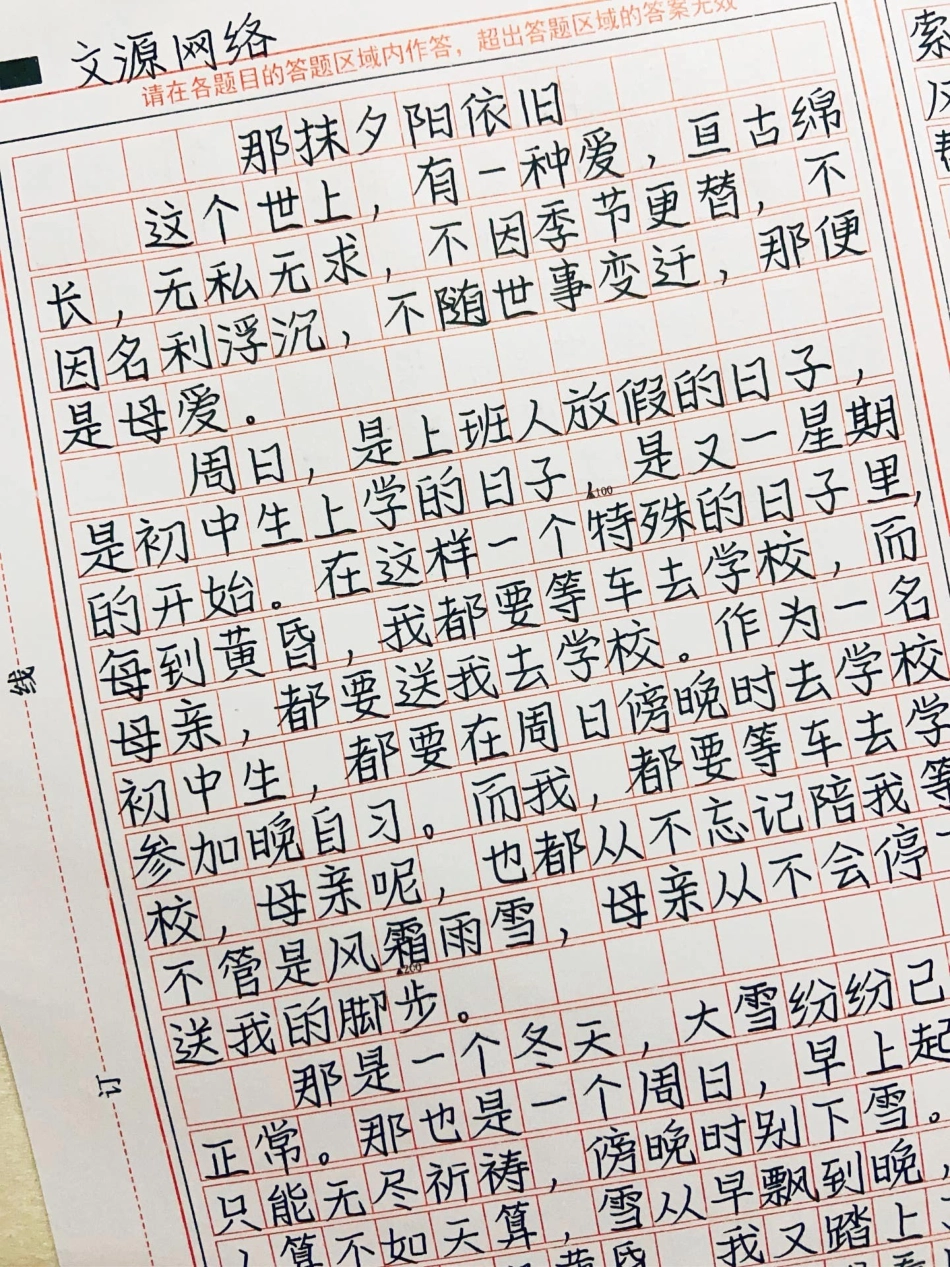 文源网络
请在各题目的答题区域内作答，超出答题区域的答案无效
那抹夕阳依旧
这个世上，有一种爱，亘古绵
长，无私无求，不因季节更替，不
因名利浮沉，不随世事变迁，那便
是母爱。
周日，是上班人放假的日子，
是初中生上学的日子，是又一星期
100
的开始。在这样一个特殊的日子里，
每到黄昏，我都要等车去学校，而
母亲，都要送我去学校。作为一名
初中生，都要在周日傍晚时去学校
参加晚自习。而我，都要等车去学
校，母亲呢，也都从不忘记陪我等
不管是风霜雨雪，母亲从不会停
200
送我的脚步。
那是一个冬天，大雪纷纷已
正常。那也是一个周日，早上起
只能无尽祈祷，傍晚时别下雪。
算不如天算，雪从早飘到晚，
黄昏 我又踏上
线
订
索
风